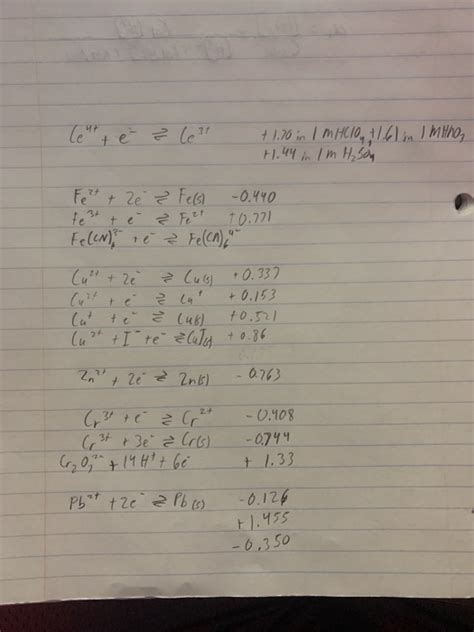 Ce⁴⁺ + e⁻ ⇌ Ce³⁺ +1.70 in 1 M HClO₄, +1.61 in 1 M HNO₃
+1.44 in 1 M H₂SO₄
Fe²⁺ + 2e⁻ ⇌ Fe(s) -0.440
Fe³⁺ + e⁻ ⇌ Fe²⁺ +0.771
Fe(CN)₆³⁻ + e⁻ ⇌ Fe(CN)₆⁴⁻
Cu²⁺ + 2e⁻ ⇌ Cu(s) +0.337
Cu²⁺ + e⁻ ⇌ Cu⁺ +0.153
Cu⁺ + e⁻ ⇌ Cu(s) +0.521
Cu²⁺ + I⁻ + e⁻ ⇌ CuI(s) +0.86
Zn²⁺ + 2e⁻ ⇌ Zn(s) -0.763
Cr³⁺ + e⁻ ⇌ Cr²⁺ -0.408
Cr³⁺ + 3e⁻ ⇌ Cr(s) -0.744
Cr₂O₇²⁻ + 14H⁺ + 6e⁻ +1.33
Pb²⁺ + 2e⁻ ⇌ Pb(s) -0.126
+1.455
-0.350